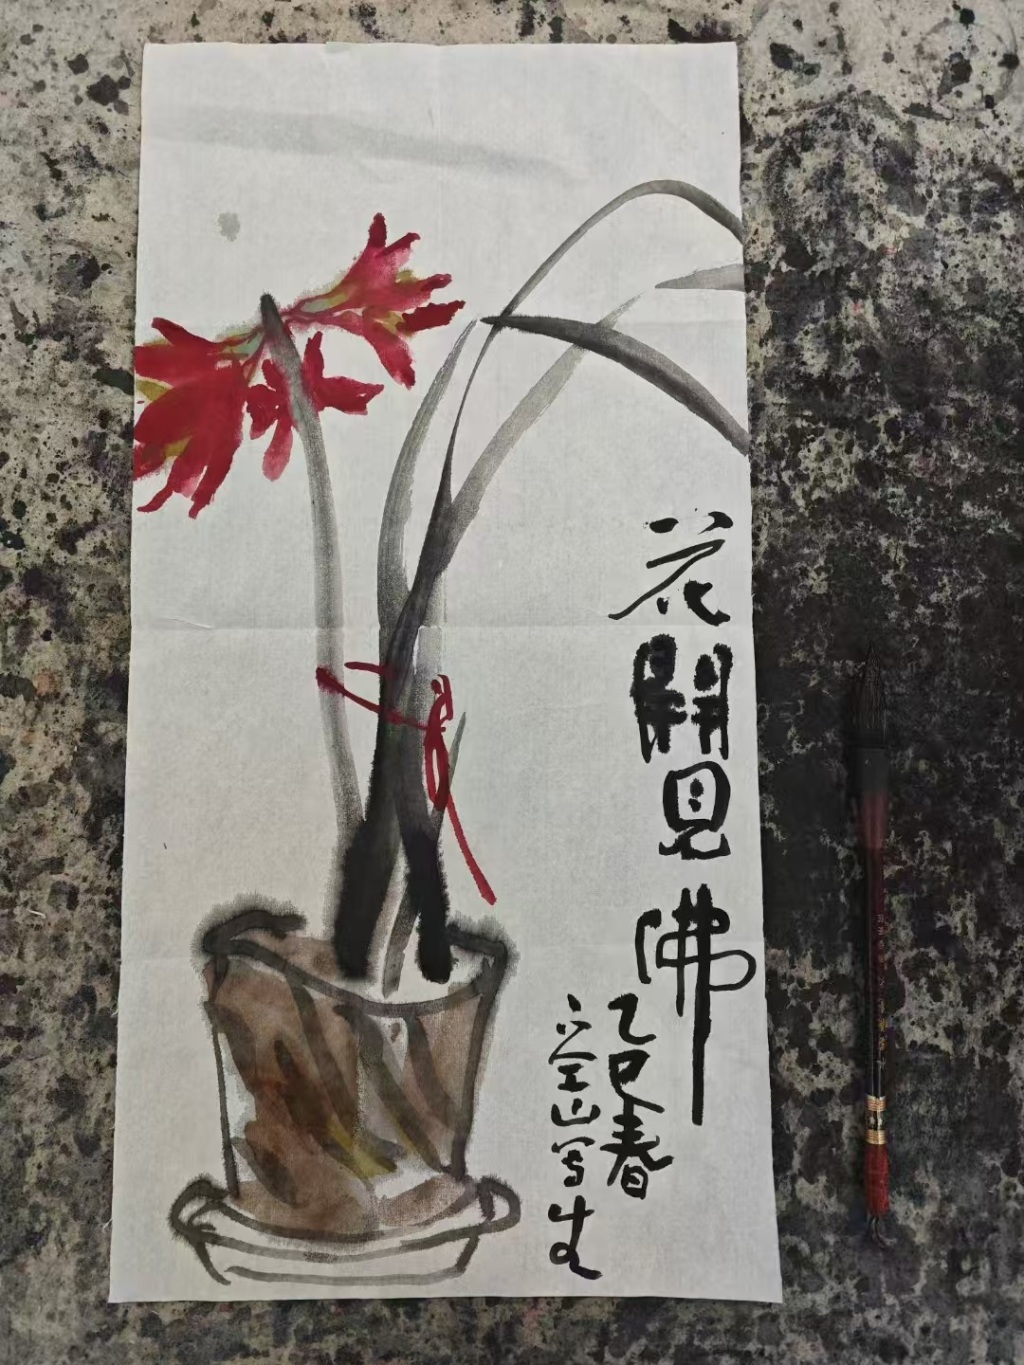 花開見佛
乙巳春
山写生